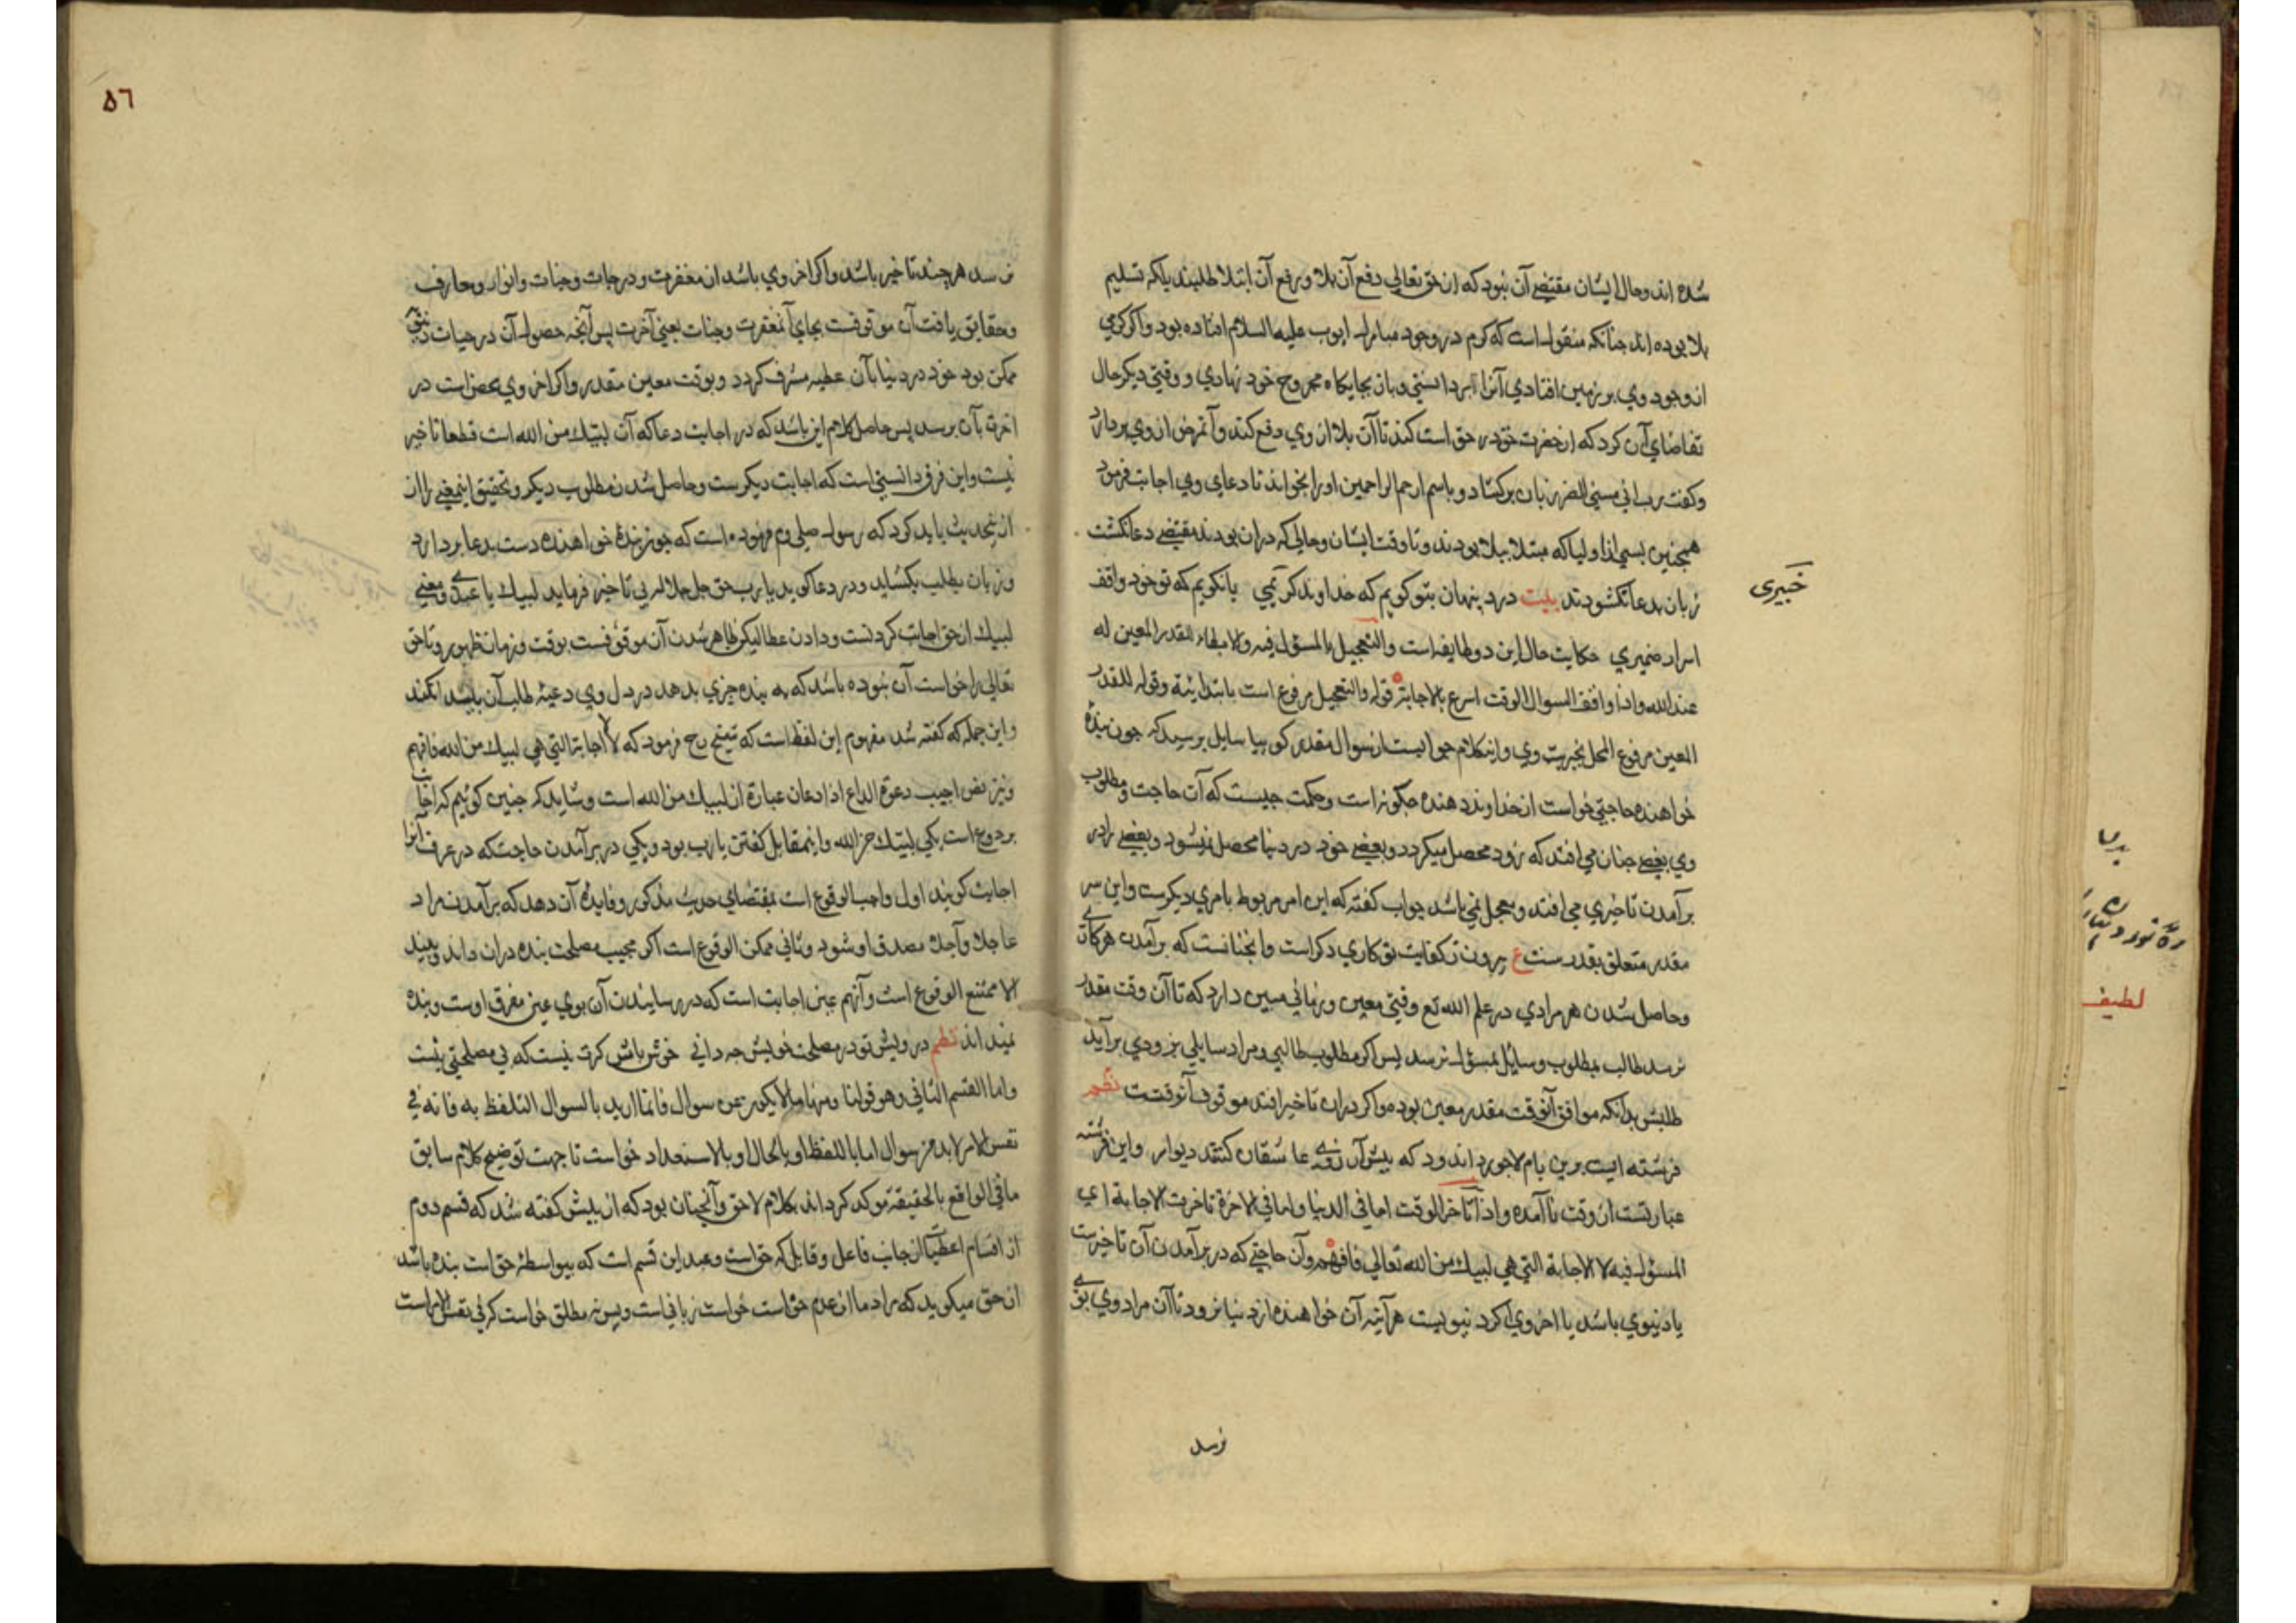 شده اند و حال ایشان مقتضی آن نبود که از حق تعالی دفع آن بلا و رفع آن ابتلا طلبند بلکه تسلیم
بلا بوده اند چنانکه منقولست که کرم در وجود مبارک ایوب علیه السلام افتاده بود و اگر کرمی
از وجود وی بر زمین افتادی آنرا برداشتی و باز بجایکاه مجروح خود نهادی و وقتی دیکر حال
تقاضای آن کرد که از حضرت حق در خواست کند تا آن بلا از وی دفع کند و آن مرض از وی بردارد
و کفت رب انی مسنی الضر زبان برکشاد و باسم ارحم الراحمین او را بخواند تا دعای وی اجابت فرمود
همچنین بسی از اولیا که مبتلا ببلا بودند و تا وقت ایشان و حالی که دران بودند مقتضی دعا نکشت
زبان بدعا نکشودند بیت درد پنهان بتو کویم که خداوند کریمی یا نکویم که تو خود واقف
خبیری
اسرار ضمیری حکایت حال این دو طایفه است والتعجیل بالمسؤل فیه والابطاء للقدر المعین له
عند الله واذا وافق السوال الوقت اسرع بالاجابة قوله والتعجیل مرفوع است بابتدائیة وقوله للقدر
المعین مرفوع المحل بخبریت وی و این کلام جوابیست از سوال مقدر کوییا سایل پرسید که چون بنده
خواهنده حاجتی خواست از خداوند دهنده چکونه است و حکمت چیست که آن حاجت و مطلوب
وی بعضی چنان می افتد که زود محصل میکردد و بعضی خود در دنیا محصل نمیشود و بعضی را در
برآمدن تاخیری می افتد و معجل نمی باشد جواب کفته که این امر مربوط بامری دیکرست و این سر
مقدر متعلق بقدرست ع بیرون ز کفایت تو کاری دکر است و آنچنانست که برآمدن هر کاری
و حاصل شدن هر مرادی در علم الله تع وقتی معین و زمانی مبین دارد که تا آن وقت مقدر
نرسد طالب بمطلوب و سایل بمسؤل نرسد پس اکر مطلوب طالبی و مراد سایلی بزودی برآید
طلبش بدانکه موافق آنوقت مقدر معین بوده و اکر دران تاخیر افتد موقوف آنوقتست نظم
فرشته ایست برین بام لاجورد اندود که پیش آرزوی عاشقان کشد دیوار و این فرشته
عبارتست از وقت نا آمده واذا تاخر الوقت اما فی الدنیا واما فی الاخرة تاخرت الاجابة ای
المسؤل فیه لا الاجابة التی هی لبیك من الله تعالی فافهم و آن حاجتی که در برآمدن آن تاخیرست
یا دنیوی باشد یا اخروی اکر دنیویست هرآینه آن خواهنده از دنیا نرود تا آن مراد وی بوی
نرسد
٥٦
نرسد هر چند تاخیر باشد و اکر اخروی باشد از مغفرت و درجات و جنات و انوار و معارف
و حقایق یافت آن موقوفست بجای آن مغفرت و جنات یعنی آخرت پس آنچه حصول آن در حیات دنیوی
ممکن بود خود در دنیا بآن عطیه مشرف کردد و بوقت معین مقدر و اکر اخروی محض است در
اخرت بآن برسد پس حاصل کلام این باشد که در اجابت دعا که آن لبیك من الله است قطعا تاخیر
نیست و این فرق دانستنی است که اجابت دیکرست و حاصل شدن مطلوب دیکر و تحقیق این معنی را از
این حدیث باید کرد که رسول صلی وم فرموده است که چون بنده خواهنده دست بدعا بردارد
و زبان بطلب بکشاید و در دعا کوید یا رب حق جل جلاله بی تاخیر فرماید لبیك یا عبدی و معنی
لبیك از حق اجابت کردنست و دادن عطا لیکن ظاهر شدن آن موقوفست بوقت و زمان ظهور و تا حق
تعالی را خواست آن نبوده باشد که به بنده چیزی بدهد در دل وی دعیه طلب آن پدید نکند
و این جمله که کفته شد مفهوم این لفظ است که شیخ رح فرمود که لا الاجابة التی هی لبیك من الله فافهم
و نیز نص اجیب دعوة الداع اذا دعان عبارة از لبیك من الله است و شاید که چنین کوییم که اجابت
بر دو نوع است یکی لبیك من الله و این مقابل کفتن یا رب بود و یکی در برآمدن حاجت که در عرف آنرا
اجابت کویند اول واجب الوقوع است بمقتضای حدیث مذکور و فایده آن دهد که برآمدن مراد
عاجلا و آجلا مصدق او شود و ثانی ممکن الوقوع است اکر مجیب مصلحت بنده دران داند و بیند
الا ممتنع الوقوع است و آنهم عین اجابت است که در رسانیدن آن بوی عین مفرق اوست و بنده
نمیداند نظم درویش تو در مصلحت خویش چه دانی خوش باش کرت نیست که بی مصلحتی نیست
واما القسم الثانی وهو قولنا ومنها ما لا یکون عن سوال فانما ارید بالسوال التلفظ به فانه فی
نفس الامر لابد من سوال اما باللفظ او بالحال او بالاستعداد خواست تا جهت توضیح کلام سابق
ما فی الواقع بالحقیقة موکد کرداند بکلام لاحق و آنچنان بود که از پیش کفته شد که قسم دوم
از اقسام اعطیات از جانب فاعل و قابل که حق است و عبد این قسم است که بیواسطه خواست بنده باشد
از حق میکوید که مراد ما از عدم خواست خواست زبانی است و بس نه مطلق خواست که فی نفس الامر است
لطیف